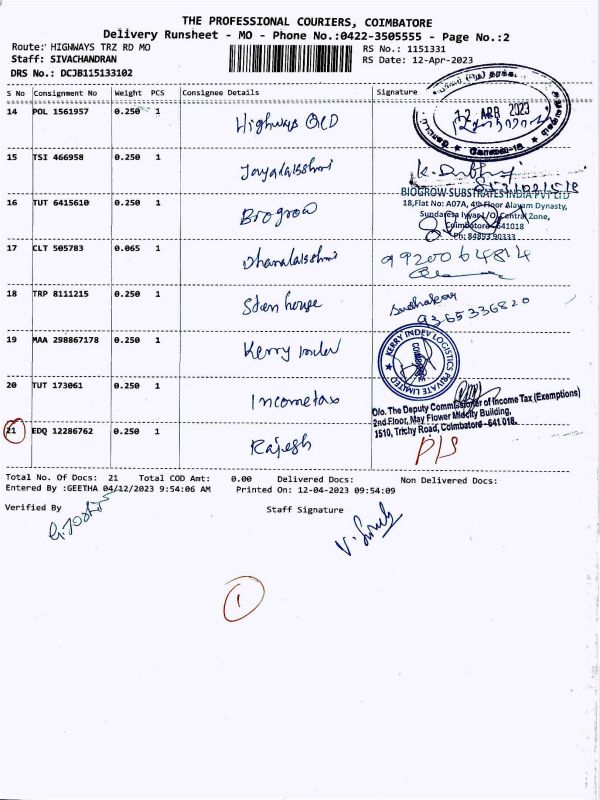 THE PROFESSIONAL COURIERS, COIMBATORE
Delivery Runsheet - MO - Phone No.:0422-3505555 - Page No.:2
Route: HIGHWAYS TRZ RD MO
RS No.: 1151331
Staff: SIVACHANDRAN
RS Date: 12-Apr-2023
DRS No.: DCJB115133102
S No Consignment No Weight PCS Consignee Details Signature
12 APR 2023
14 POL 1561957 0.250 1 Highways
15 TSI 466958 0.250 1 Jayalakshmi
16 TUT 6415610 0.250 1 Biogrow
BIOGROW SUBSTRATES INDIA PVT LTD
18,Flat No: A07A, 4th Floor Alayam Dynasty,
Sundaresa Iyyar L/O, Central Zone,
Coimbatore-641018
Ph: 84893 90333
17 CLT 505783 0.065 1 Dhanalakshmi 9920064814
18 TRP 8111215 0.250 1 Sten house Sudhakar
9365336820
19 MAA 298867178 0.250 1 Kerry indev
KERRY INDEV LOGISTICS PRIVATE LIMITED
20 TUT 173061 0.250 1 Incometax
O/o. The Deputy Commissioner of Income Tax (Exemptions)
2nd Floor, May Flower Midcity Building,
1510, Trichy Road, Coimbatore - 641 018.
21 EDQ 12286762 0.250 1 Rajesh D/S
Total No. Of Docs: 21 Total COD Amt: 0.00 Delivered Docs: Non Delivered Docs:
Entered By :GEETHA 04/12/2023 9:54:06 AM Printed On: 12-04-2023 09:54:09
Verified By Staff Signature
1